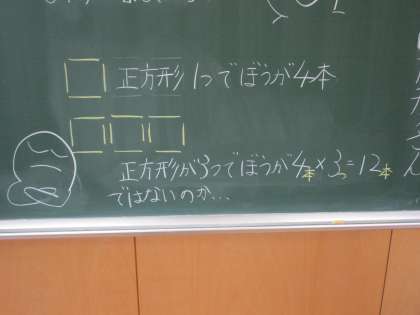 正方形1つでぼうが4本
正方形が3つでぼうが4本×3つ=12本
ではないのか…